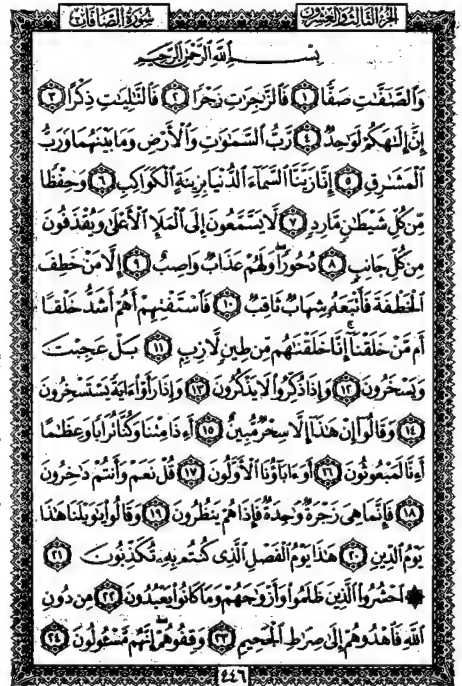 الجزء الثالث والعشرون سورة الصافات
بِسْمِ اللَّهِ الرَّحْمَٰنِ الرَّحِيمِ
وَالصَّٰٓفَّٰتِ صَفًّا ١ فَالزَّٰجِرَٰتِ زَجْرًا ٢ فَالتَّٰلِيَٰتِ ذِكْرًا ٣
إِنَّ إِلَٰهَكُمْ لَوَٰحِدٌ ٤ رَّبُّ السَّمَٰوَٰتِ وَالْأَرْضِ وَمَا بَيْنَهُمَا وَرَبُّ
الْمَشَٰرِقِ ٥ إِنَّا زَيَّنَّا السَّمَآءَ الدُّنْيَا بِزِينَةٍ الْكَوَاكِبِ ٦ وَحِفْظًا
مِّن كُلِّ شَيْطَٰنٍ مَّارِدٍ ٧ لَّا يَسَّمَّعُونَ إِلَى الْمَلَإِ الْأَعْلَىٰ وَيُقْذَفُونَ
مِن كُلِّ جَانِبٍ ٨ دُحُورًا وَلَهُمْ عَذَابٌ وَاصِبٌ ٩ إِلَّا مَنْ خَطِفَ
الْخَطْفَةَ فَأَتْبَعَهُ شِهَابٌ ثَاقِبٌ ١٠ فَاسْتَفْتِهِمْ أَهُمْ أَشَدُّ خَلْقًا
أَم مَّنْ خَلَقْنَآ إِنَّا خَلَقْنَٰهُم مِّن طِينٍ لَّازِبٍ ١١ بَلْ عَجِبْتَ
وَيَسْخَرُونَ ١٢ وَإِذَا ذُكِّرُوا لَا يَذْكُرُونَ ١٣ وَإِذَا رَأَوْا ءَايَةً يَسْتَسْخِرُونَ
١٤ وَقَالُوٓا إِنْ هَٰذَآ إِلَّا سِحْرٌ مُّبِينٌ ١٥ أَءِذَا مِتْنَا وَكُنَّا تُرَابًا وَعِظَٰمًا
أَءِنَّا لَمَبْعُوثُونَ ١٦ أَوَءَابَآؤُنَا الْأَوَّلُونَ ١٧ قُلْ نَعَمْ وَأَنتُمْ دَٰخِرُونَ
١٨ فَإِنَّمَا هِيَ زَجْرَةٌ وَٰحِدَةٌ فَإِذَا هُمْ يَنظُرُونَ ١٩ وَقَالُوا يَٰوَيْلَنَا هَٰذَا
يَوْمُ الدِّينِ ٢٠ هَٰذَا يَوْمُ الْفَصْلِ الَّذِي كُنتُم بِهِ تُكَذِّبُونَ ٢١
۞ احْشُرُوا الَّذِينَ ظَلَمُوا وَأَزْوَٰجَهُمْ وَمَا كَانُوا يَعْبُدُونَ ٢٢ مِن دُونِ
اللَّهِ فَاهْدُوهُمْ إِلَىٰ صِرَٰطِ الْجَحِيمِ ٢٣ وَقِفُوهُمْ إِنَّهُم مَّسْـُٔولُونَ ٢٤
٤٤٦